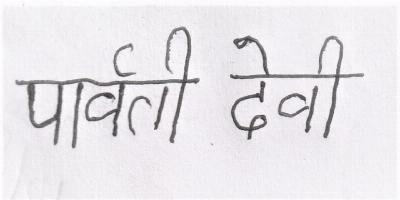 पार्वती देवी